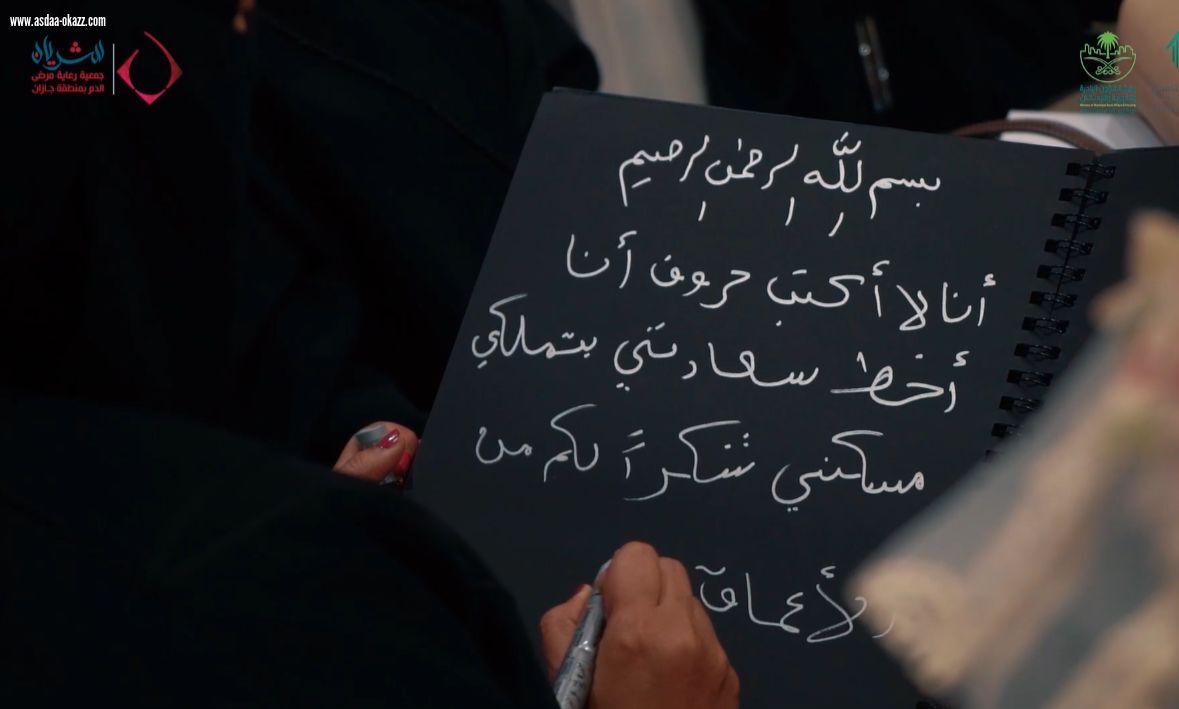 www.asdaa-okazz.com
الشريان
جمعية رعاية مرضى
الدم بمنطقة جازان
بسم الله الرحمن الرحيم
أنا لا أكتب حروف أنا
أخط سعادتي بتملكي
مسكني شكراً لكم من
الأعماق